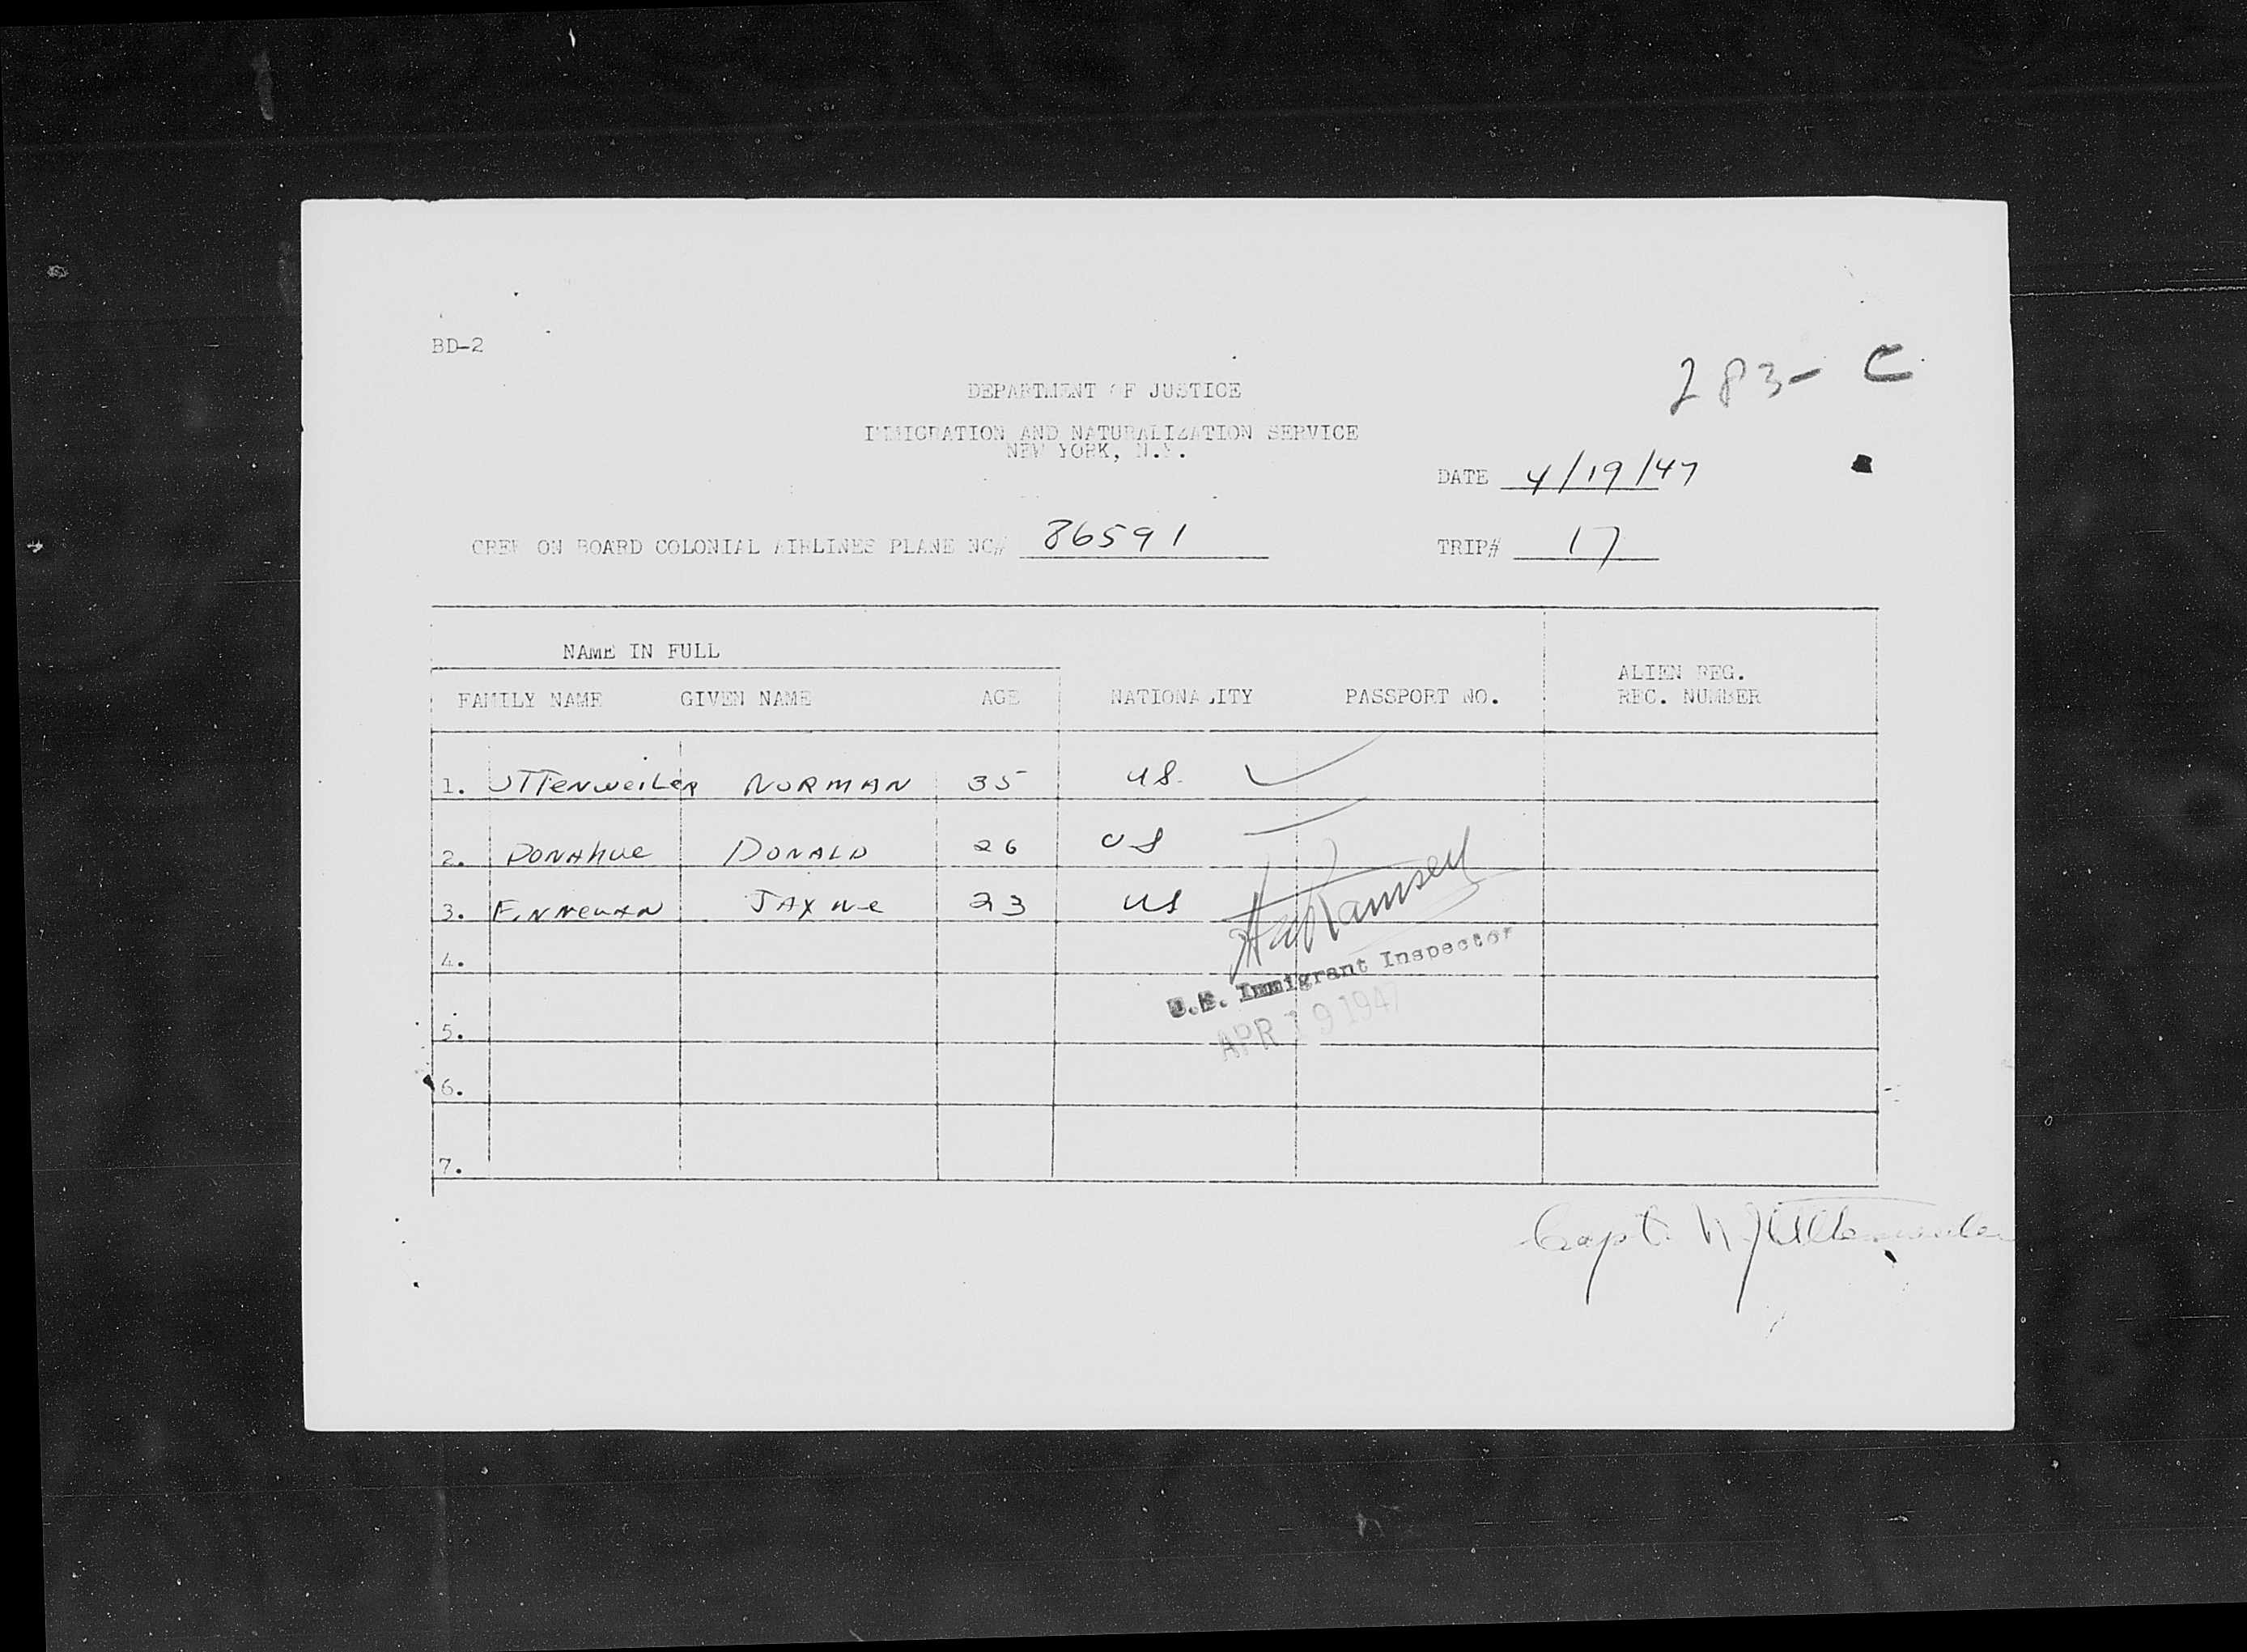 BD-2
283- C
DEPARTMENT OF JUSTICE
IMMIGRATION AND NATURALIZATION SERVICE
NEW YORK, N.Y.
DATE 4/19/47
CREW ON BOARD COLONIAL AIRLINES PLANE NC# 86591 TRIP# 17
NAME IN FULL
FAMILY NAME GIVEN NAME AGE NATIONALITY PASSPORT NO. ALIEN REG. REC. NUMBER
1. UTTenweiLeR NORMAN 35 US.
2. DONAhue DONALD 26 US
3. 23 US
Ramsey
4.
U.S. Immigrant Inspector
APR 19 1947
5.
6.
7.
Capt. N J Uttenweiler